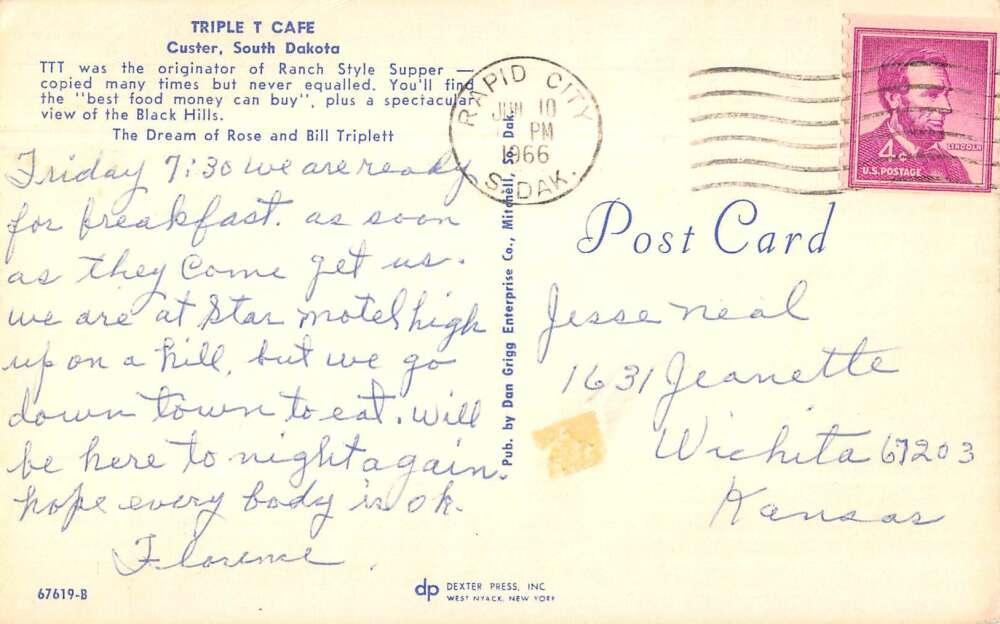 TRIPLE T CAFE
Custer, South Dakota
TTT was the originator of Ranch Style Supper —
copied many times but never equalled. You'll find
the "best food money can buy", plus a spectacular
view of the Black Hills.
The Dream of Rose and Bill Triplett
Friday 7:30 we are ready
for breakfast. as soon
as they come get us.
we are at Star motel high
up on a hill, but we go
down town to eat. will
be here to night again.
hope every body is ok.
Florence.
67619-B
Pub. by Dan Grigg Enterprise Co., Mitchell, So. Dak.
dp DEXTER PRESS, INC.
WEST NYACK, NEW YORK
RAPID CITY
JUN 10
PM
1966
S. DAK.
4¢
LINCOLN
U.S. POSTAGE
Post Card
Jesse Neal
1631 Jeanette
Wichita 67203
Kansas